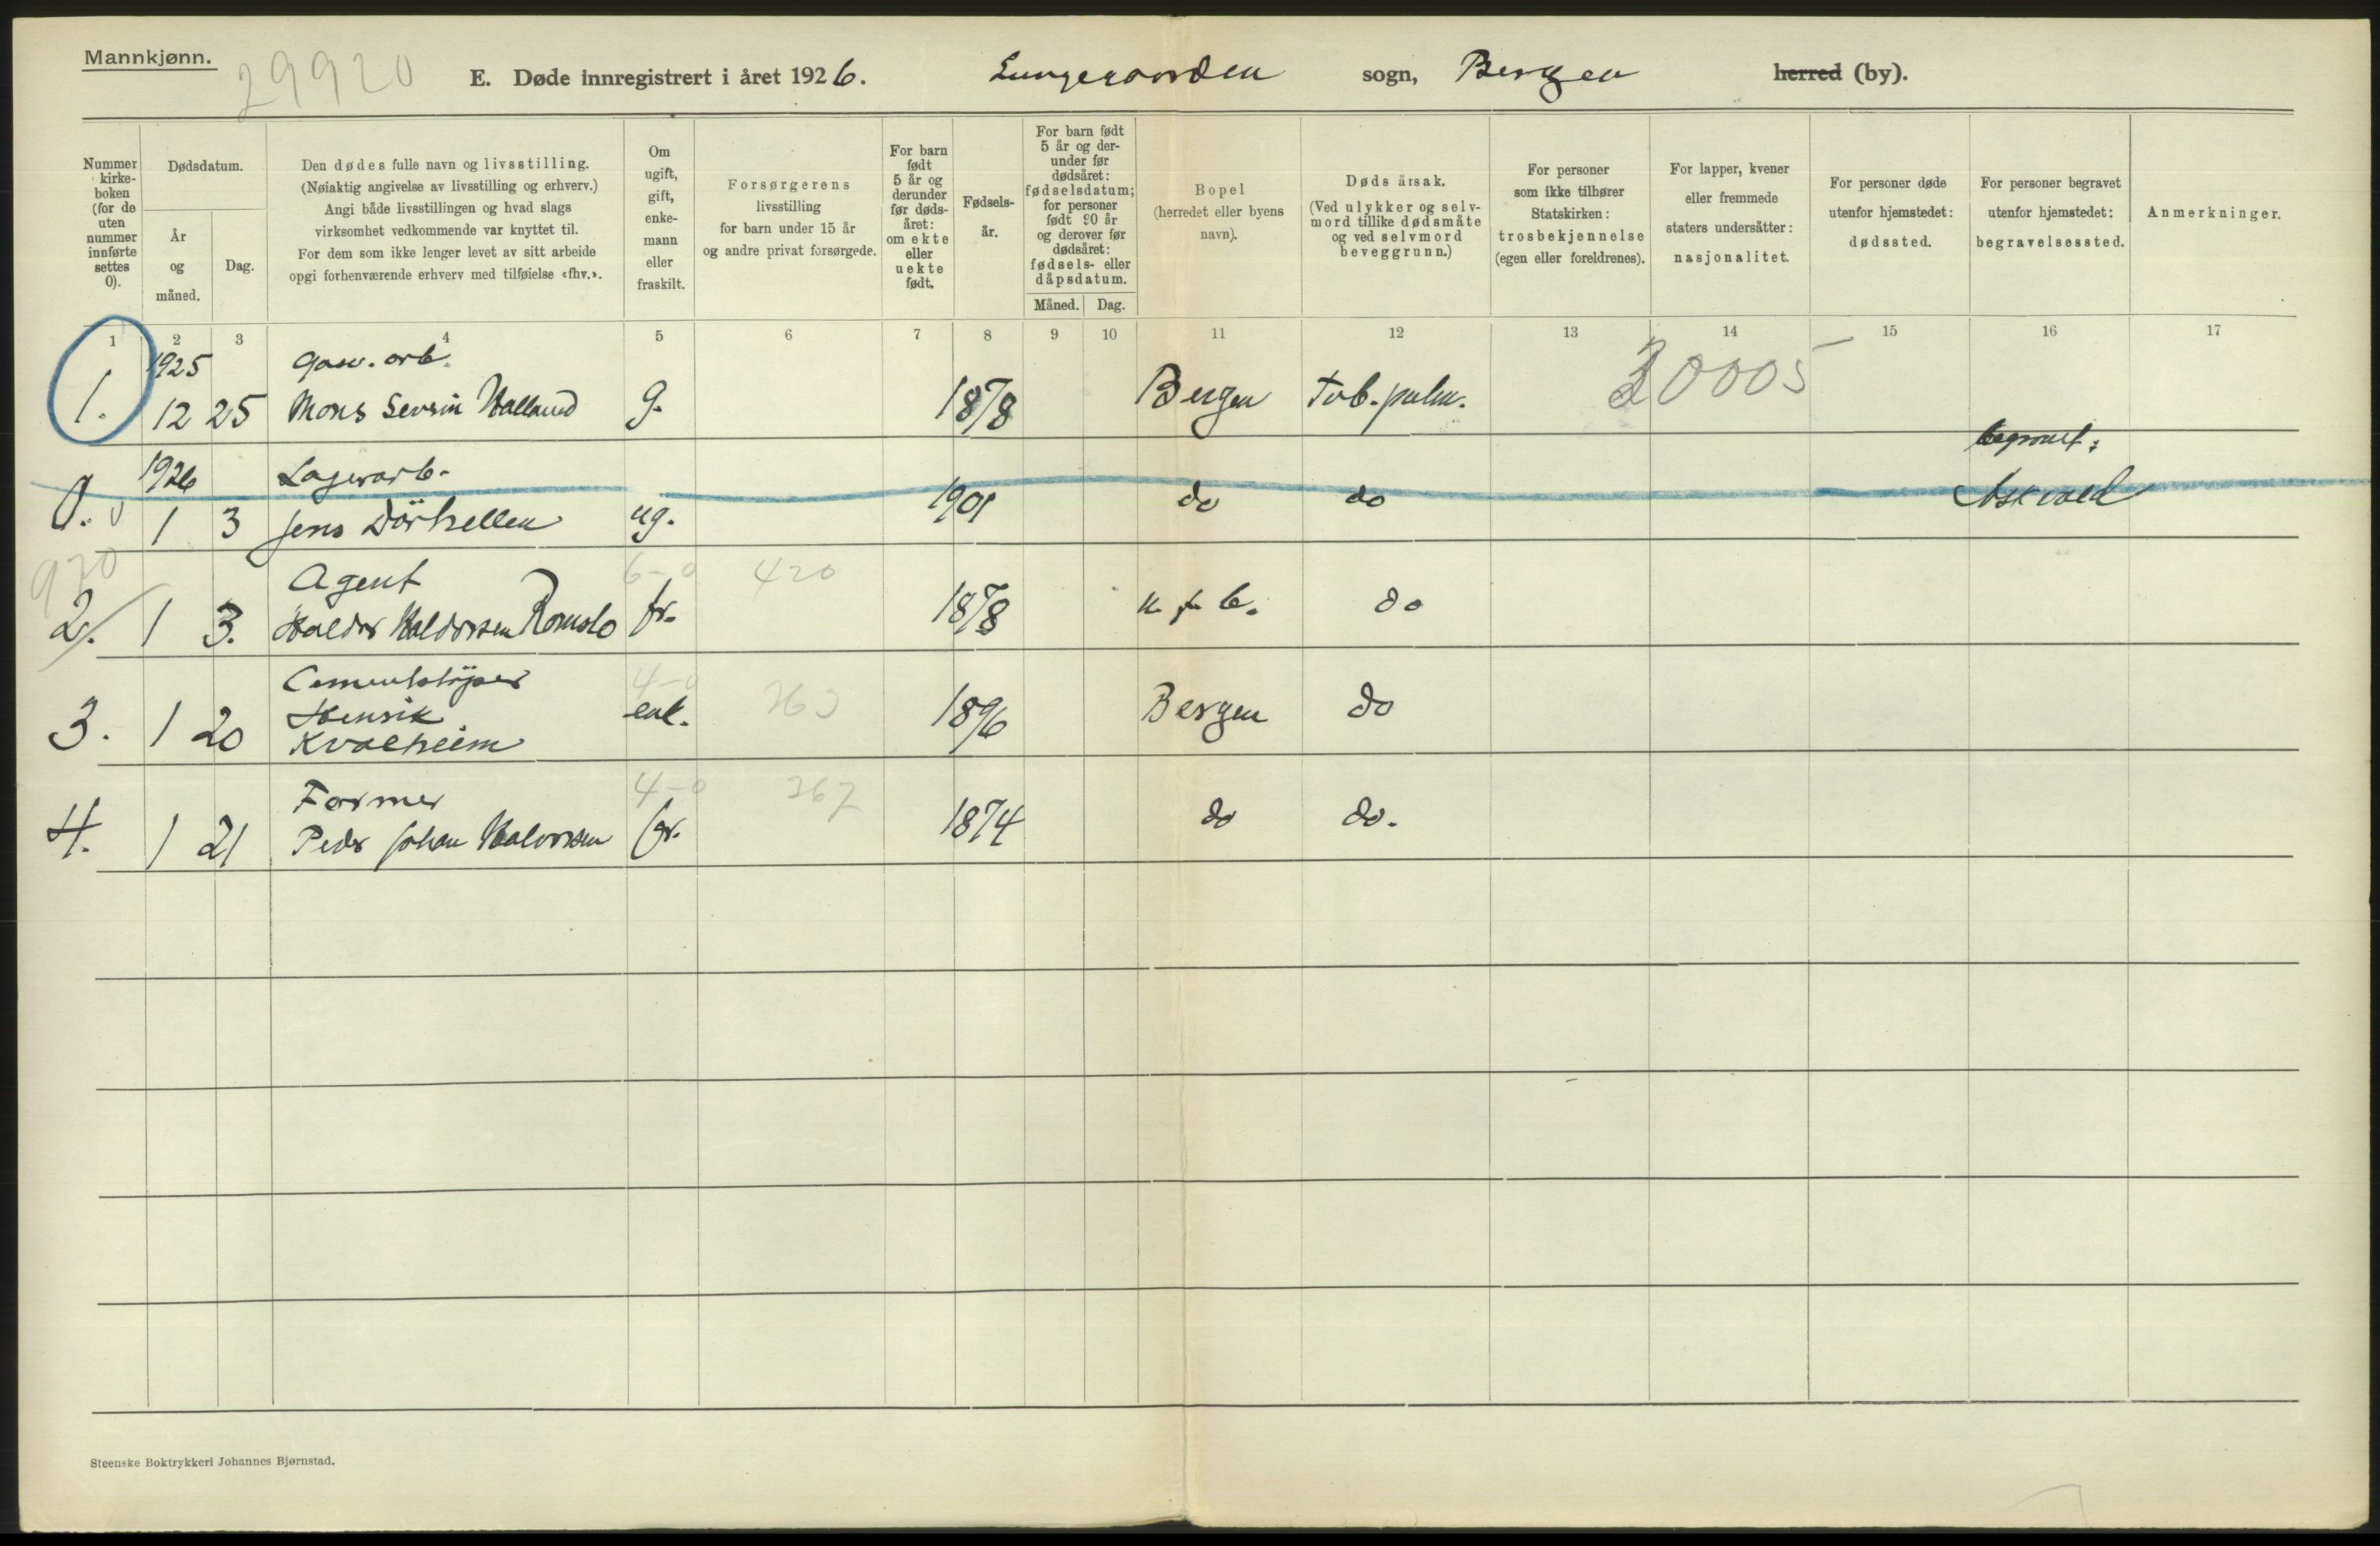 Mannkjønn.
29920
E. Døde innregistrert i året 1926. Lungegaarden sogn, Bergen herred (by).
Nummer
kirke-
boken
(for de
uten
nummer
innførte
settes
0).
Dødsdatum.
År
og
måned.
Dag.
Den dødes fulle navn og livsstilling.
(Nøiaktig angivelse av livsstilling og erhverv.)
Angi både livsstillingen og hvad slags
virksomhet vedkommende var knyttet til.
For dem som ikke lenger levet av sitt arbeide
opgi forhenværende erhverv med tilføielse «fhv.».
Om
ugift,
gift,
enke-
mann
eller
fraskilt.
Forsørgerens
livsstilling
for barn under 15 år
og andre privat forsørgede.
For barn
født
5 år og
derunder
før døds-
året:
om ekte
eller
uekte
født.
Fødsels-
år.
For barn født
5 år og der-
under før
dødsåret:
fødselsdatum;
for personer
født 90 år
og derover før
dødsåret:
fødsels- eller
dåpsdatum.
Måned. Dag.
Bopel
(herredet eller byens
navn).
Dødsårsak.
(Ved ulykker og selv-
mord tillike dødsmåte
og ved selvmord
beveggrunn.)
For personer
som ikke tilhører
Statskirken:
trosbekjennelse
(egen eller foreldrenes).
For lapper, kvener
eller fremmede
staters undersåtter:
nasjonalitet.
For personer døde
utenfor hjemstedet:
dødssted.
For personer begravet
utenfor hjemstedet:
begravelsessted.
Anmerkninger.
1 2 3 4 5 6 7 8 9 10 11 12 13 14 15 16 17
1925 arb.
1. 12 25 Mons Severin Halland g. 1878 Bergen Tub. pulm. 30005
begravet:
1926 Lagerarb.
0. 0 1 3 Jens Dörhellen ug. 1901 do do Askvold
970 Agent 6-0 420
2. 1 3. Haldor Haldorsen Romslo fr. 1878 do
Cementstöper 4-0
3. 1 20 Henrik enk. 1896 Bergen do
Kvalheim
Former 4-0 367
4. 1 21 Peder Johan Halvorsen gr. 1874 do do.
Steenske Boktrykkeri Johannes Bjørnstad.